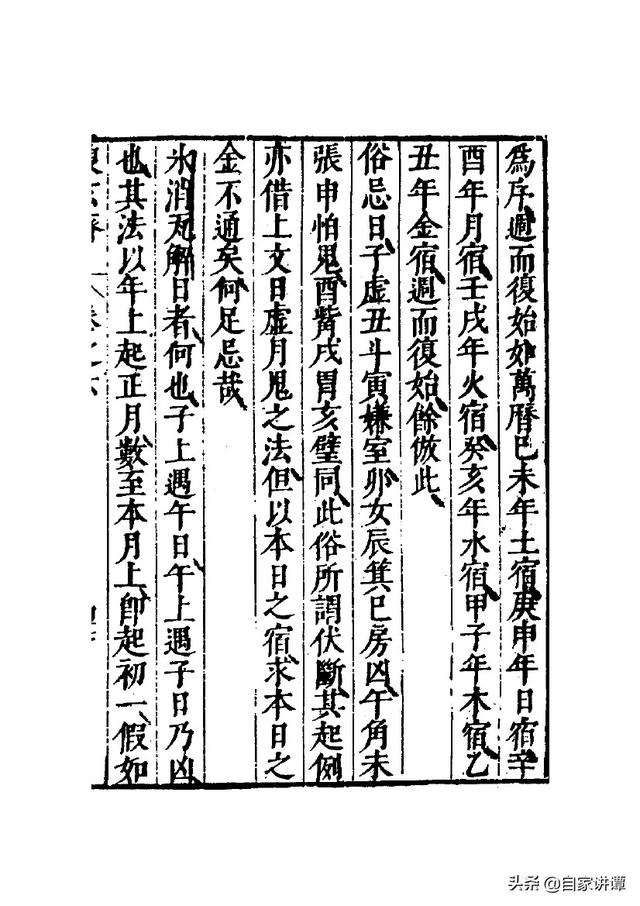 爲序週而復始如萬曆巳未年土宿庚申年日宿辛
酉年月宿壬戌年火宿癸亥年水宿甲子年木宿乙
丑年金宿週而復始餘倣此
俗忌日子虛丑斗寅嫌室卯女辰箕巳房凶午角未
張申怕鬼酉觜戌胃亥壁同此俗所謂伏斷其起例
亦借上文日虛月鬼之法但以本日之宿求本日之
金不通矣何足忌哉
氷消瓦解日者何也子上遇午日午上遇子日乃凶
也其法以年上起正月數至本月上卽起初一假如
卷之六
头条 @自家讲谭